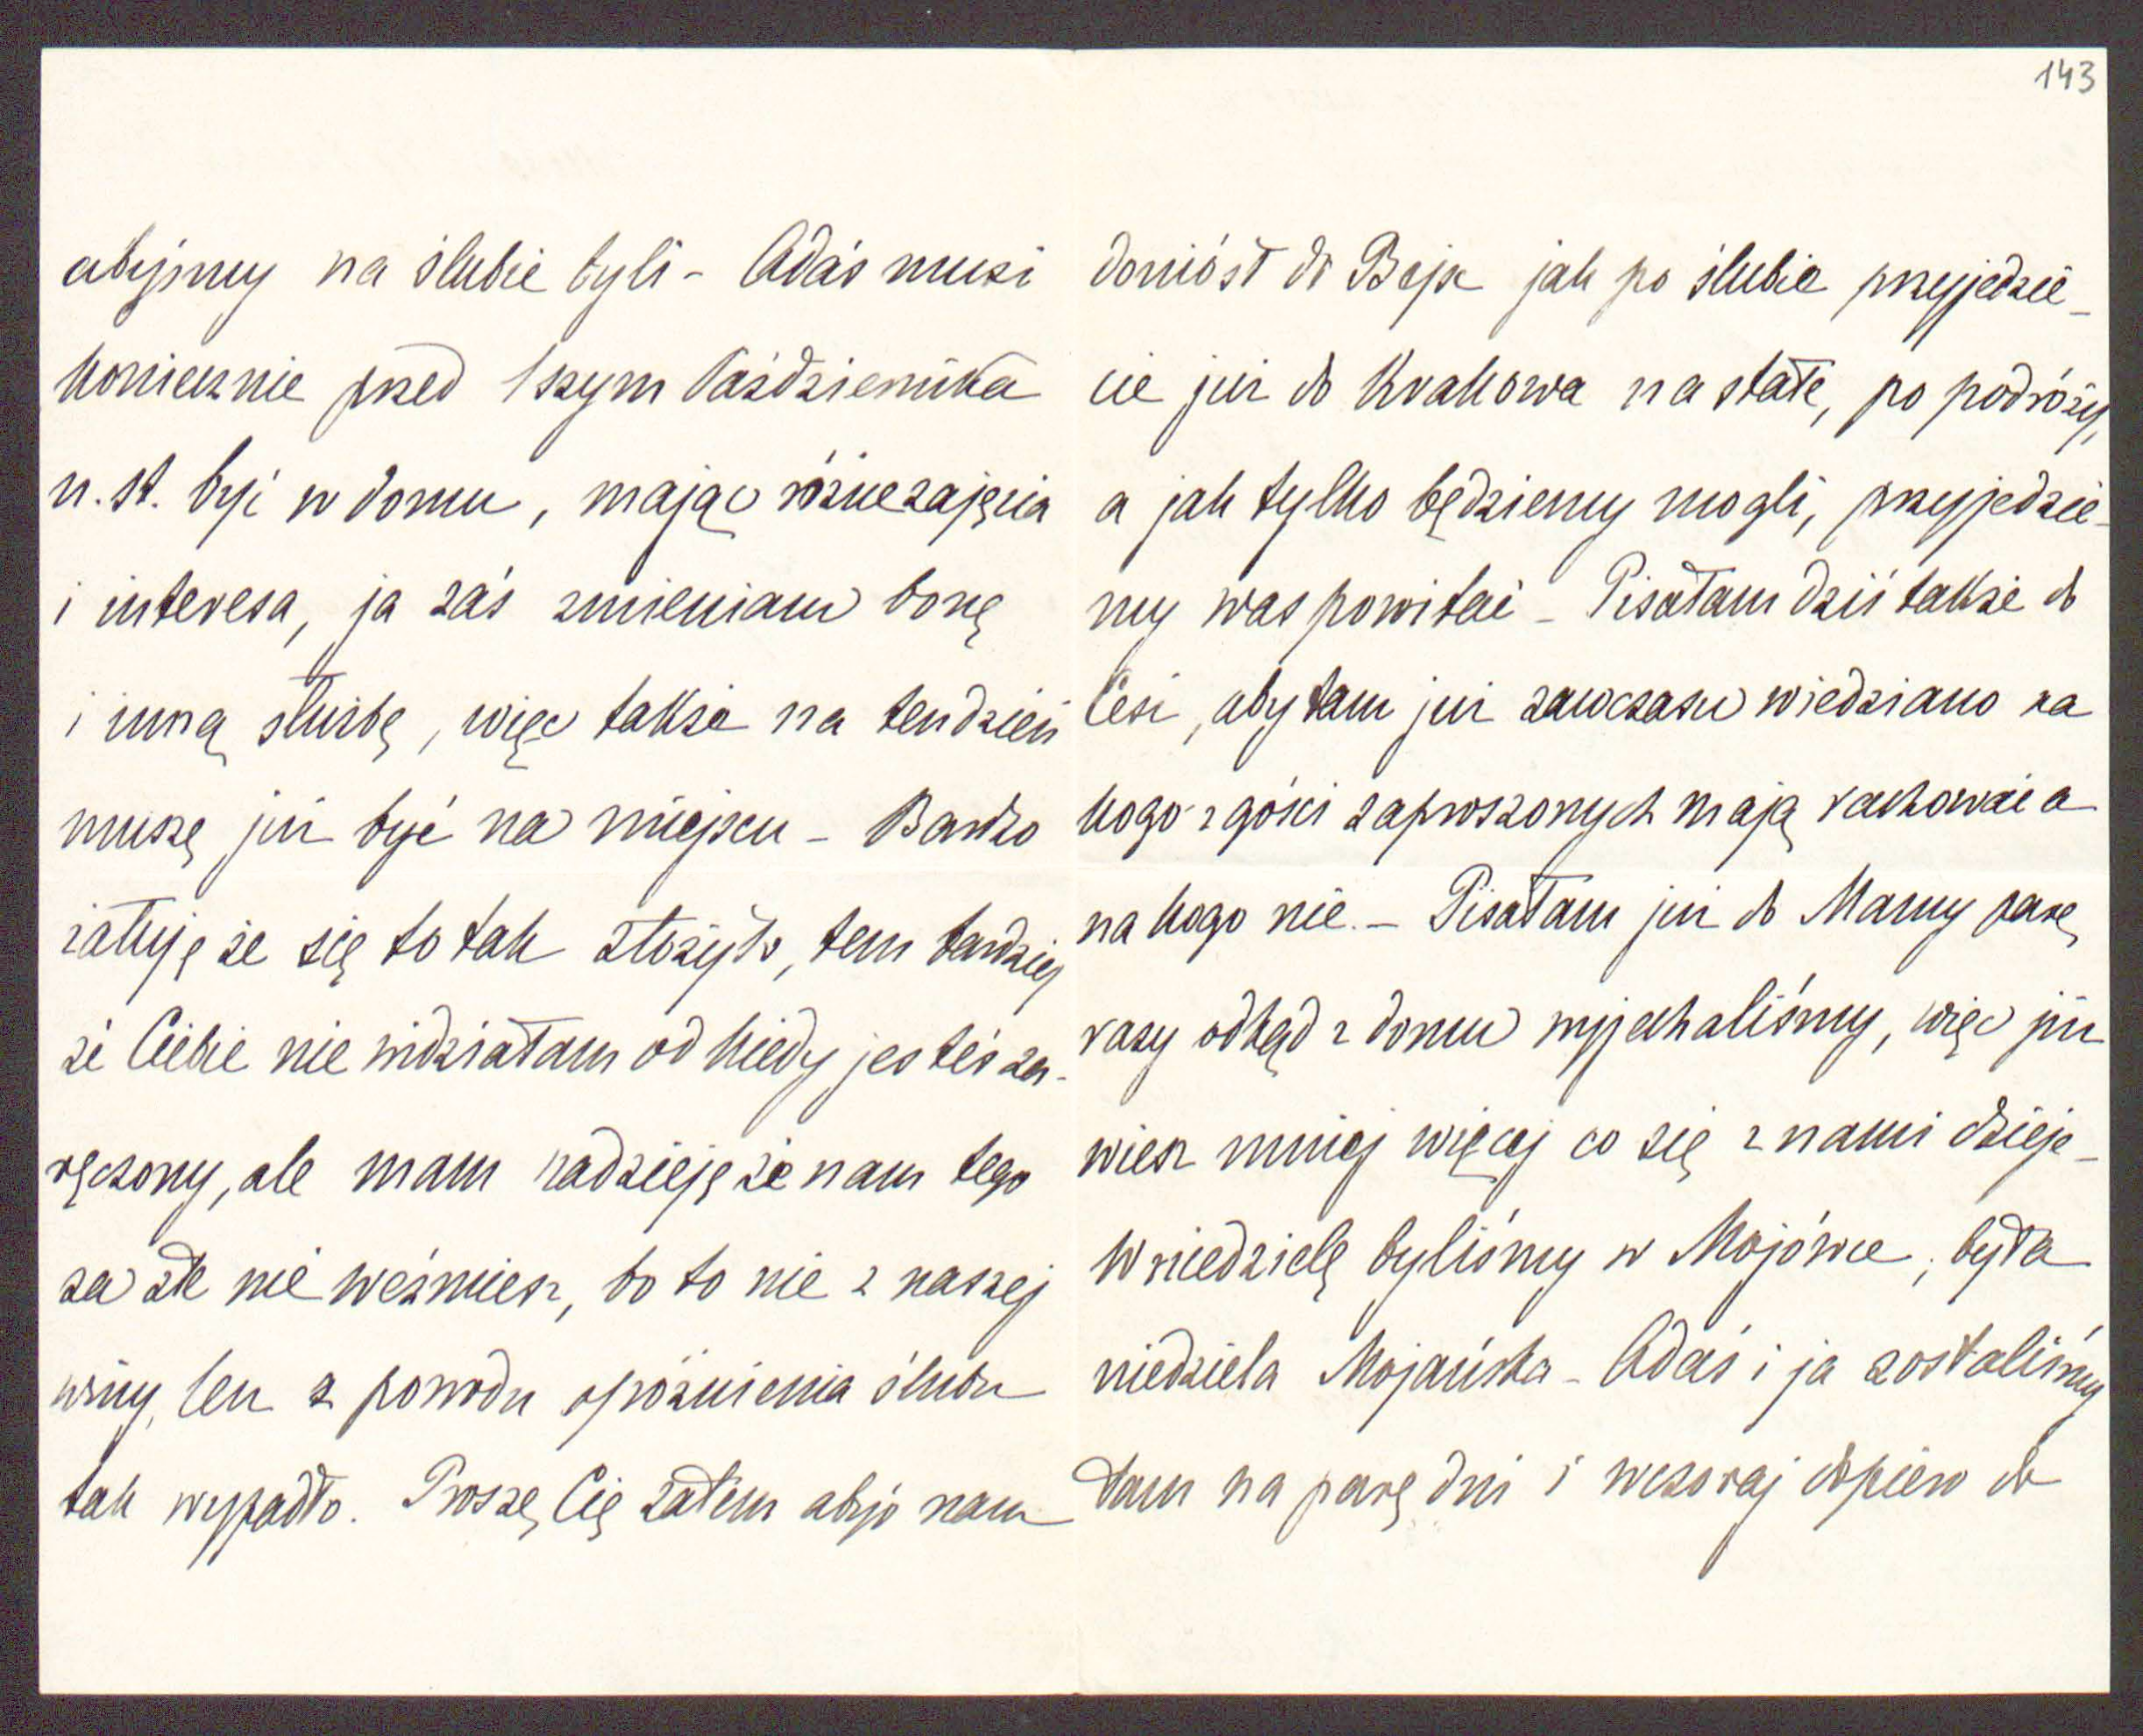 abyśmy na ślubie byli - Adaś musi
koniecznie przed 1szym Października
n. st. być w domu, mając różne zajęcia
i interesa, ja zaś zmieniam bonę
i inną służbę, więc także na ten dzień
muszę już być na miejscu - Bardzo
żałuję że się to tak złożyło, tem bardziej
że Ciebie nie widziałam od kiedy jesteś za-
ręczony, ale mam nadzieję że nam tego
za złe nie weźmiesz, bo to nie z naszej
winy, len z powodu opóźnienia ślubu
tak wypadło. Proszę Cię zatem abyś nam
143
doniósł do Bejsc jak po ślubie przyjedzie-
cie już do Krakowa na stałe, po podróży,
a jak tylko będziemy mogli, przyjedzie-
my was powitać - Pisałam dziś także do
Cesi, aby tam już zawczasu wiedziano na
kogo z gości zaproszonych mają rachować a
na kogo nie. - Pisałam już do Mamy parę
razy odkąd z domu wyjechaliśmy, więc już
wiesz mniej więcej co się z nami dzieje -
W niedzielę byliśmy w Mojówce, była
niedziela Mojańska - Adaś i ja zostaliśmy
tam na parę dni i wczoraj dopiero do